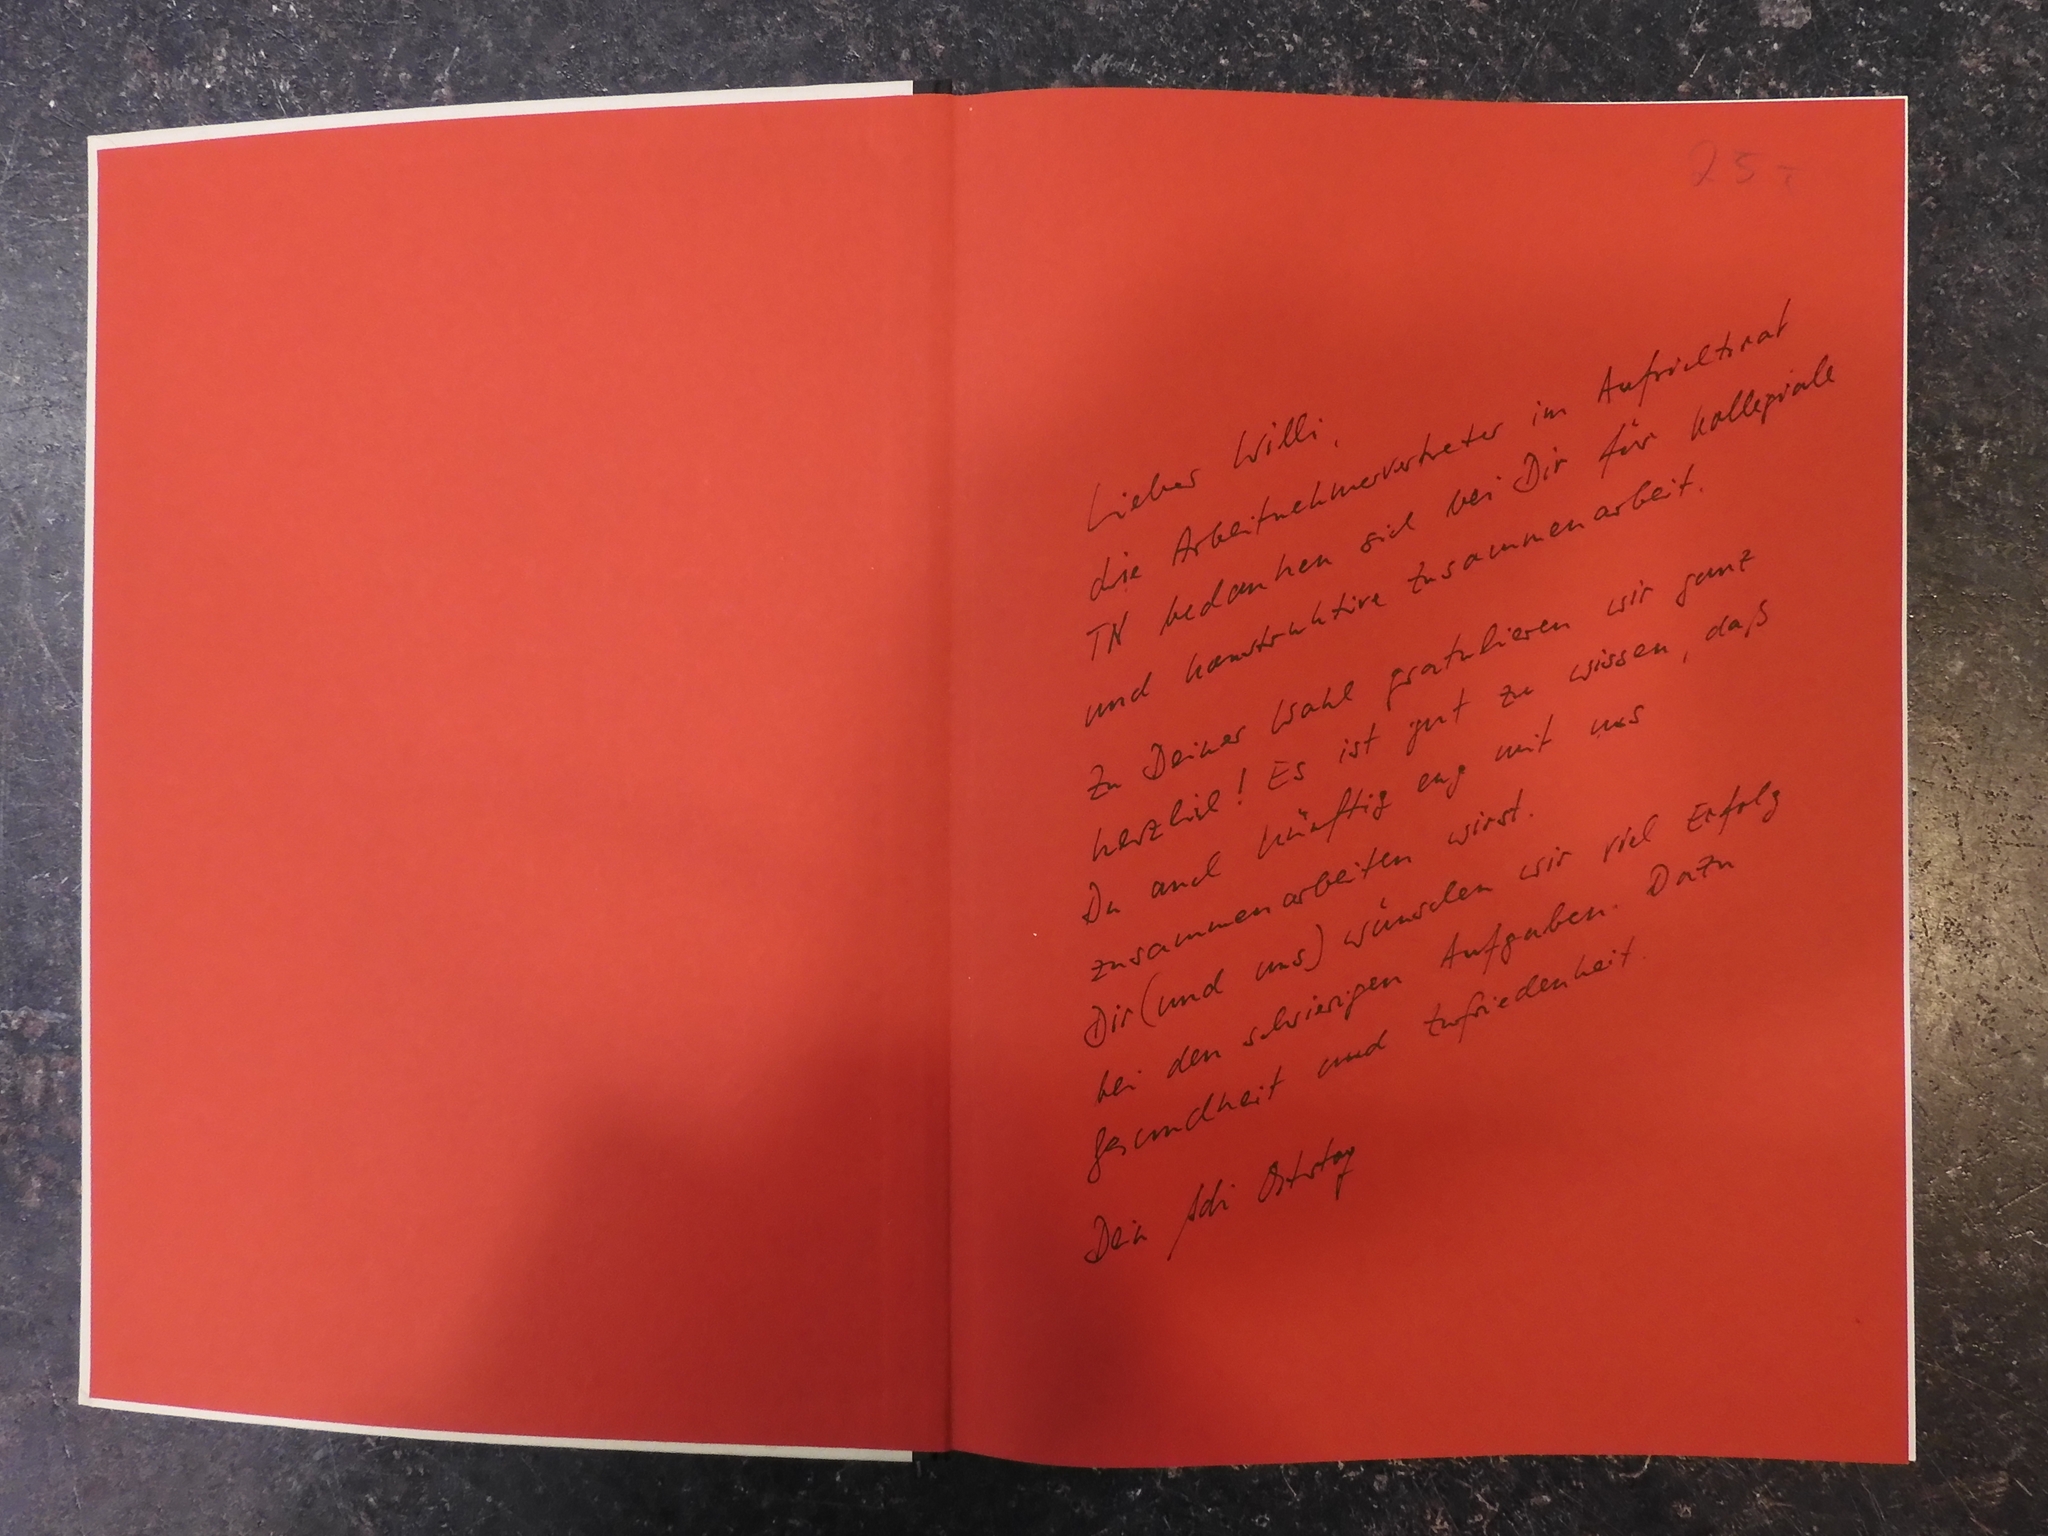 25,-
Lieber Willi,
die Arbeitnehmervertreter im Aufsichtsrat
TN bedanken sich bei Dir für kollegiale
und konstruktive Zusammenarbeit.
Zu Deiner Wahl gratulieren wir ganz
herzlich! Es ist gut zu wissen, daß
Du auch künftig eng mit uns
zusammenarbeiten wirst.
Dir (und uns) wünschen wir viel Erfolg
bei den schwierigen Aufgaben. Dazu
Gesundheit und Zufriedenheit.
Dein Adi Ostertag